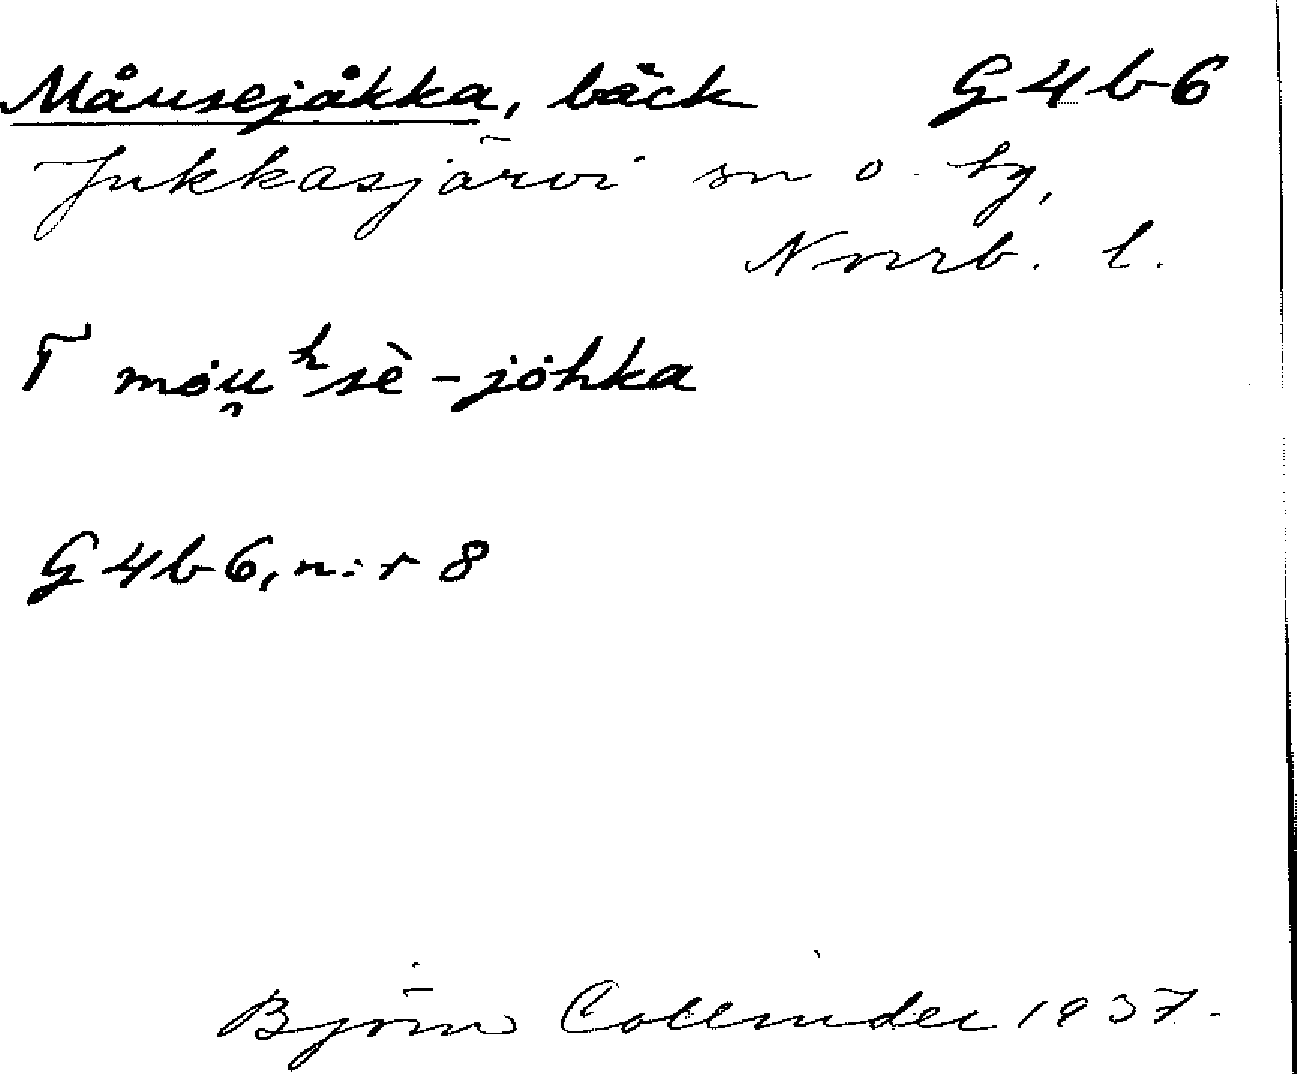 Måusejåkka, bäck G4b6
Jukkasjärvi sn o. by,
Norrb. l.
T mȯu̯ʰsè-jȯhka
G4b6, n:r 8
Björn Collinder 1937.